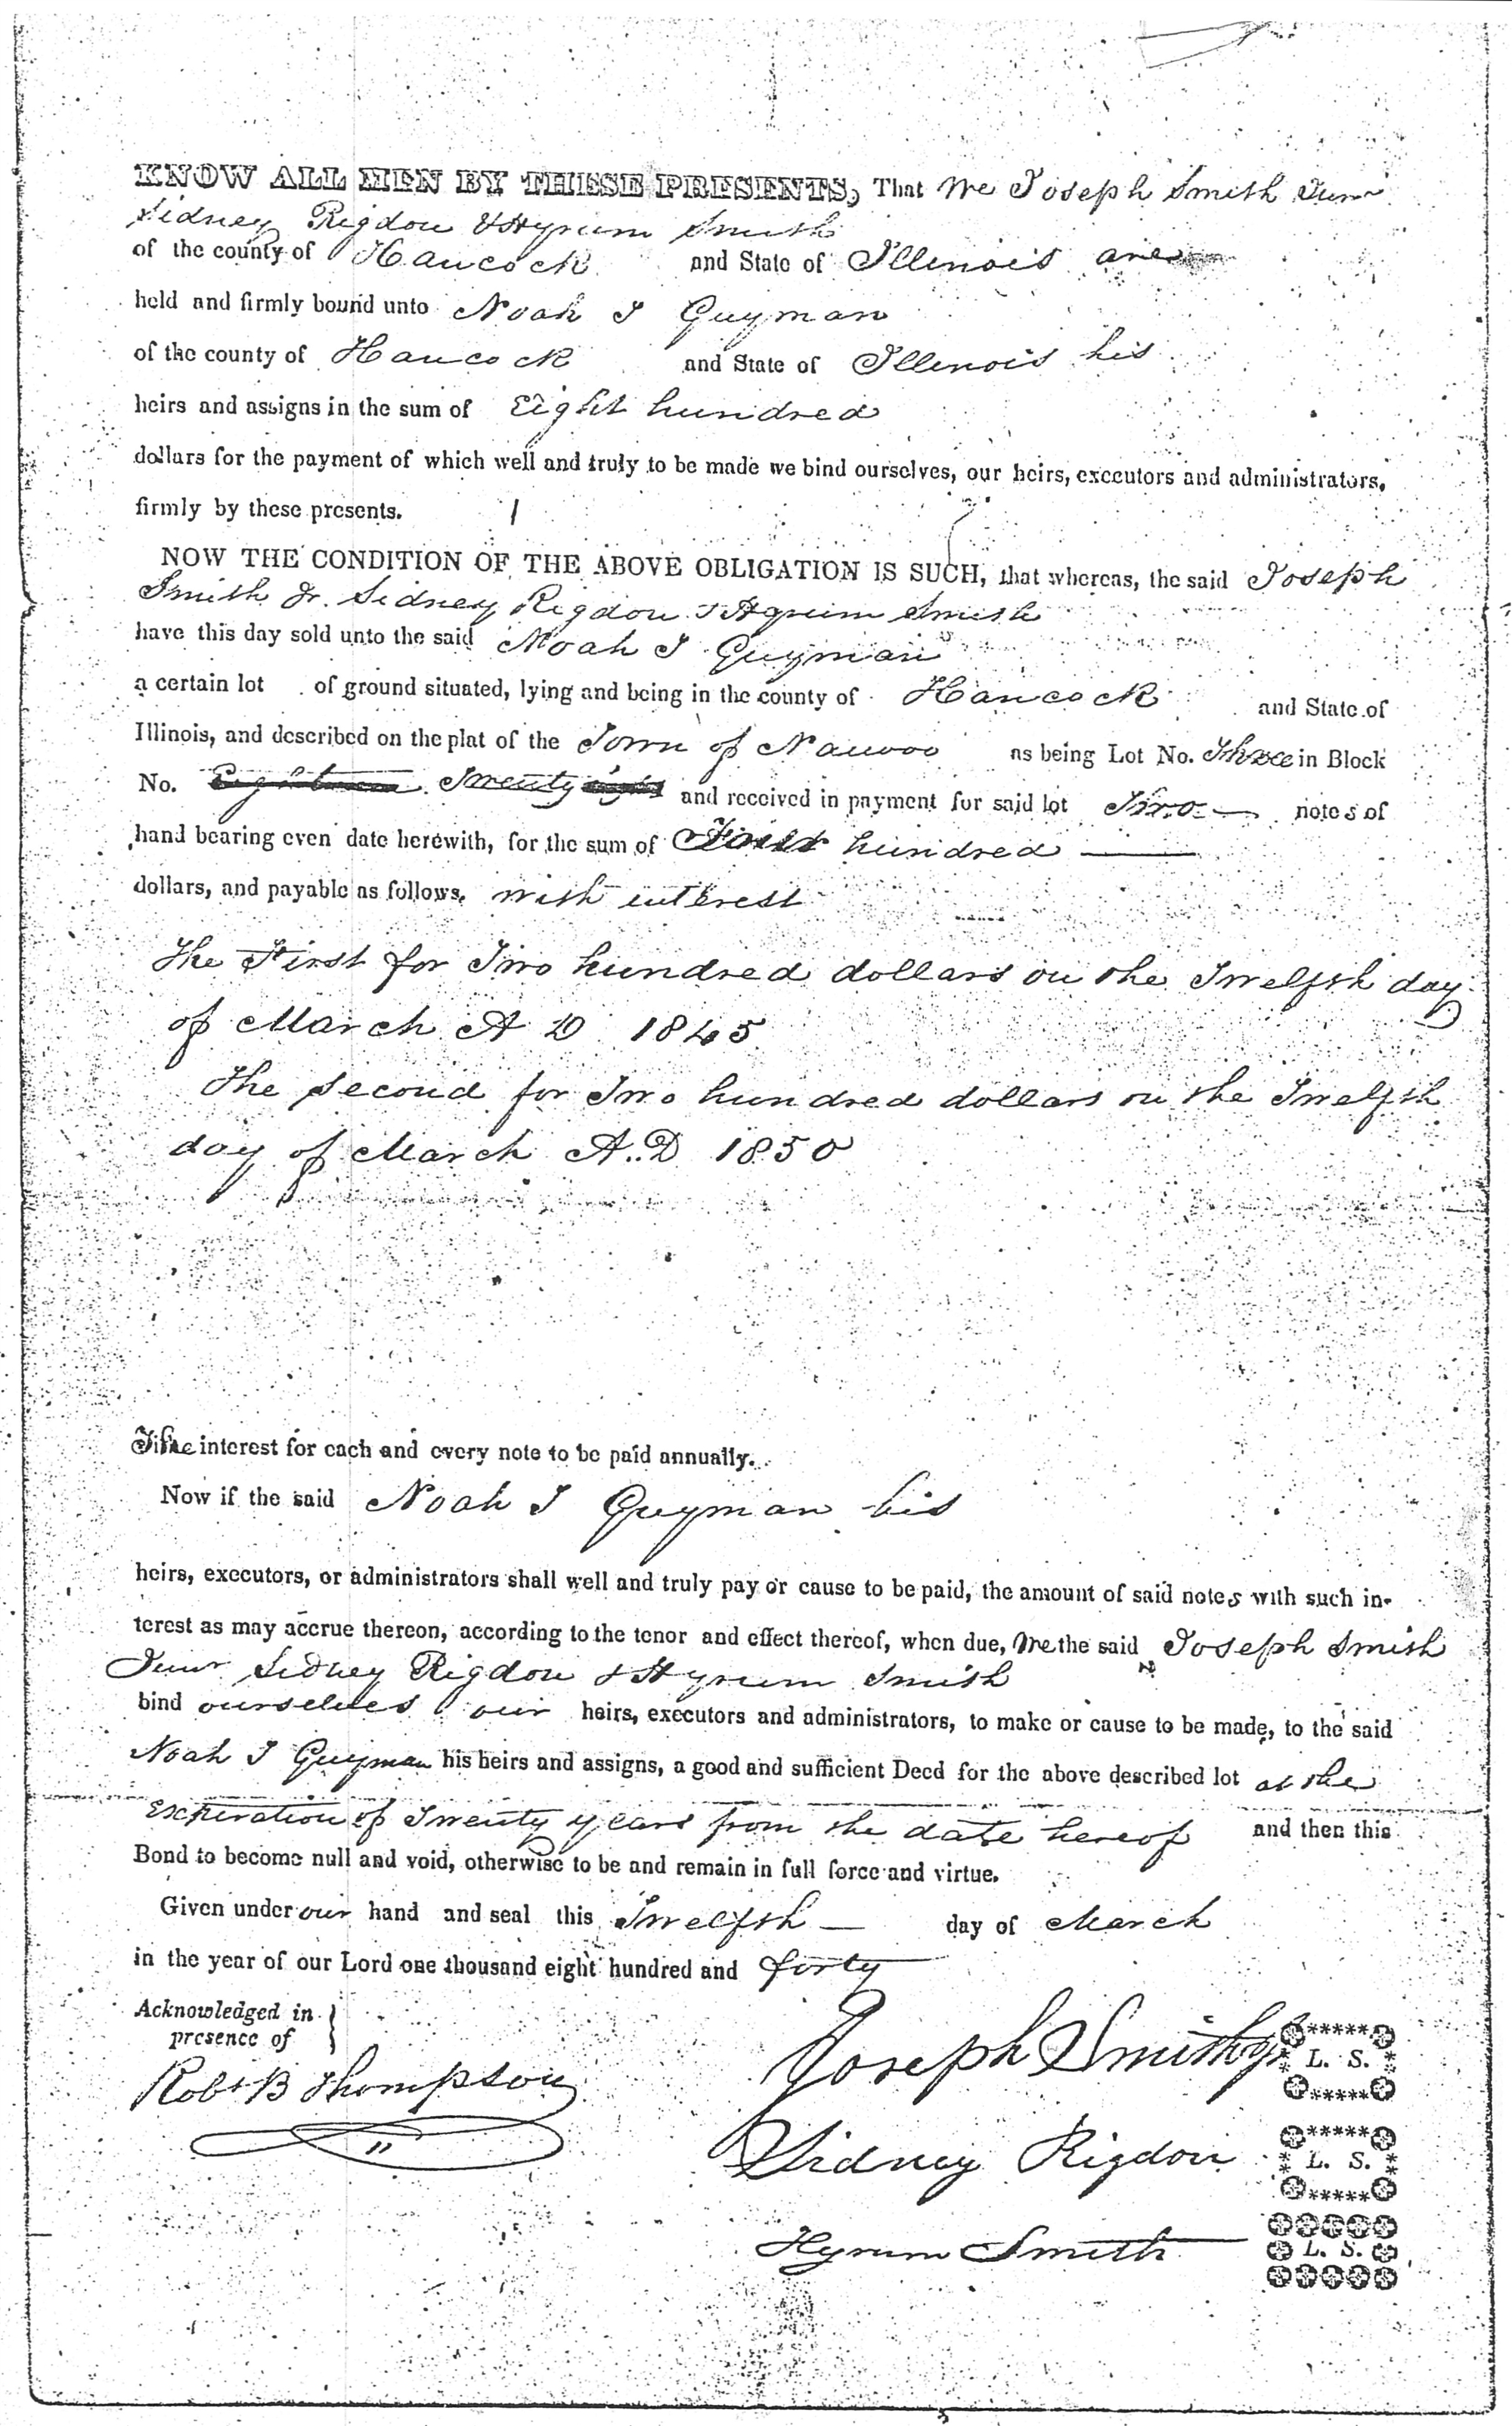 KNOW ALL MEN BY THESE PRESENTS, That We Joseph Smith Junr
Sidney Rigdon & Hyrum Smith
of the county of Hancock and State of Illinois are
held and firmly bound unto Noah T Guyman
of the county of Hancock and State of Illinois his
heirs and assigns in the sum of Eight hundred
dollars for the payment of which well and truly to be made we bind ourselves, our heirs, executors and administrators,
firmly by these presents.
NOW THE CONDITION OF THE ABOVE OBLIGATION IS SUCH, that whereas, the said Joseph
Smith Jr. Sidney Rigdon & Hyrum Smith
have this day sold unto the said Noah T Guyman
a certain lot of ground situated, lying and being in the county of Hancock and State of
Illinois, and described on the plat of the Town of Nauvoo as being Lot No. Three in Block
No. Eighteen Twenty eight and received in payment for said lot Two — notes of
hand bearing even date herewith, for the sum of Four hundred —
dollars, and payable as follows, with interest
The First for Two hundred dollars on the Twelfth day
of March A D 1845
The second for Two hundred dollars on the Twelfth
day of March A.D 1850
The interest for each and every note to be paid annually.
Now if the said Noah T Guyman his
heirs, executors, or administrators shall well and truly pay or cause to be paid, the amount of said notes with such in-
terest as may accrue thereon, according to the tenor and effect thereof, when due, We the said Joseph Smith
Junr Sidney Rigdon & Hyrum Smith
bind ourselves our heirs, executors and administrators, to make or cause to be made, to the said
Noah T Guyman his heirs and assigns, a good and sufficient Deed for the above described lot at the
expiration of Twenty years from the date hereof and then this
Bond to become null and void, otherwise to be and remain in full force and virtue.
Given under our hand and seal this Twelfth — day of March
in the year of our Lord one thousand eight hundred and forty
Acknowledged in
presence of
Robt B Thompson
Joseph Smith Jr L. S.
Sidney Rigdon L. S.
Hyrum Smith L. S.